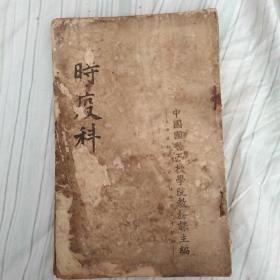 時疫科
中國國醫函授學院教務課主編